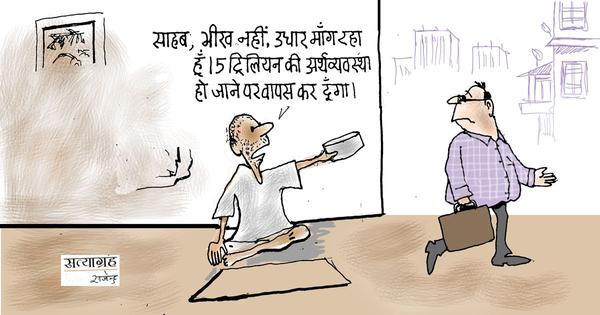 साहब, भीख नहीं, उधार माँग रहा
हूँ। 5 ट्रिलियन की अर्थव्यवस्था
हो जाने पर वापस कर दूँगा।
सत्याग्रह
राजेन्द्र